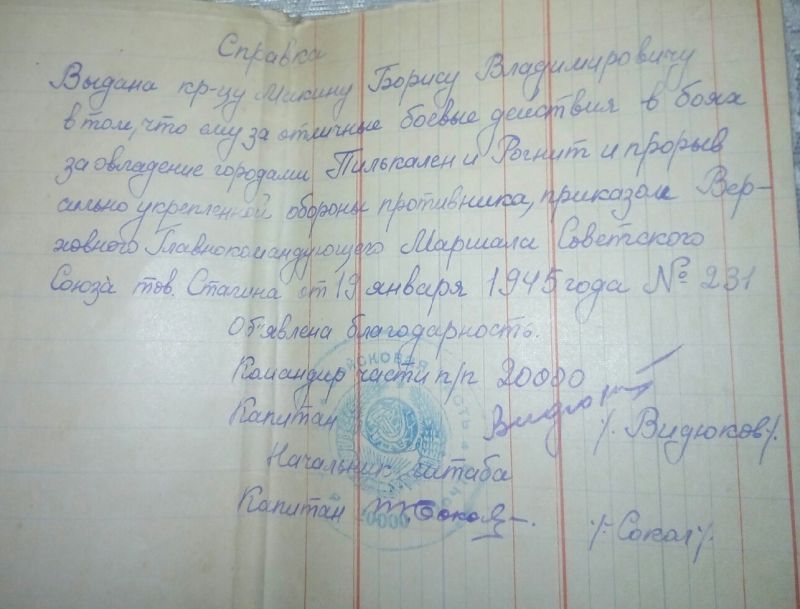 Справка
Выдана кр-цу Микину Борису Владимировичу
в том, что ему за отличные боевые действия в боях
за овладение городами Пилькален и Рогнит и прорыв
сильно укрепленной обороны противника, приказом Вер-
ховного Главнокомандующего Маршала Советского
Союза тов. Сталина от 19 января 1945 года № 231
Объявлена благодарность.
Командир части п/п 20000
Капитан /. Видюков/.
Начальник штаба
Капитан /. Сокол/.
20000